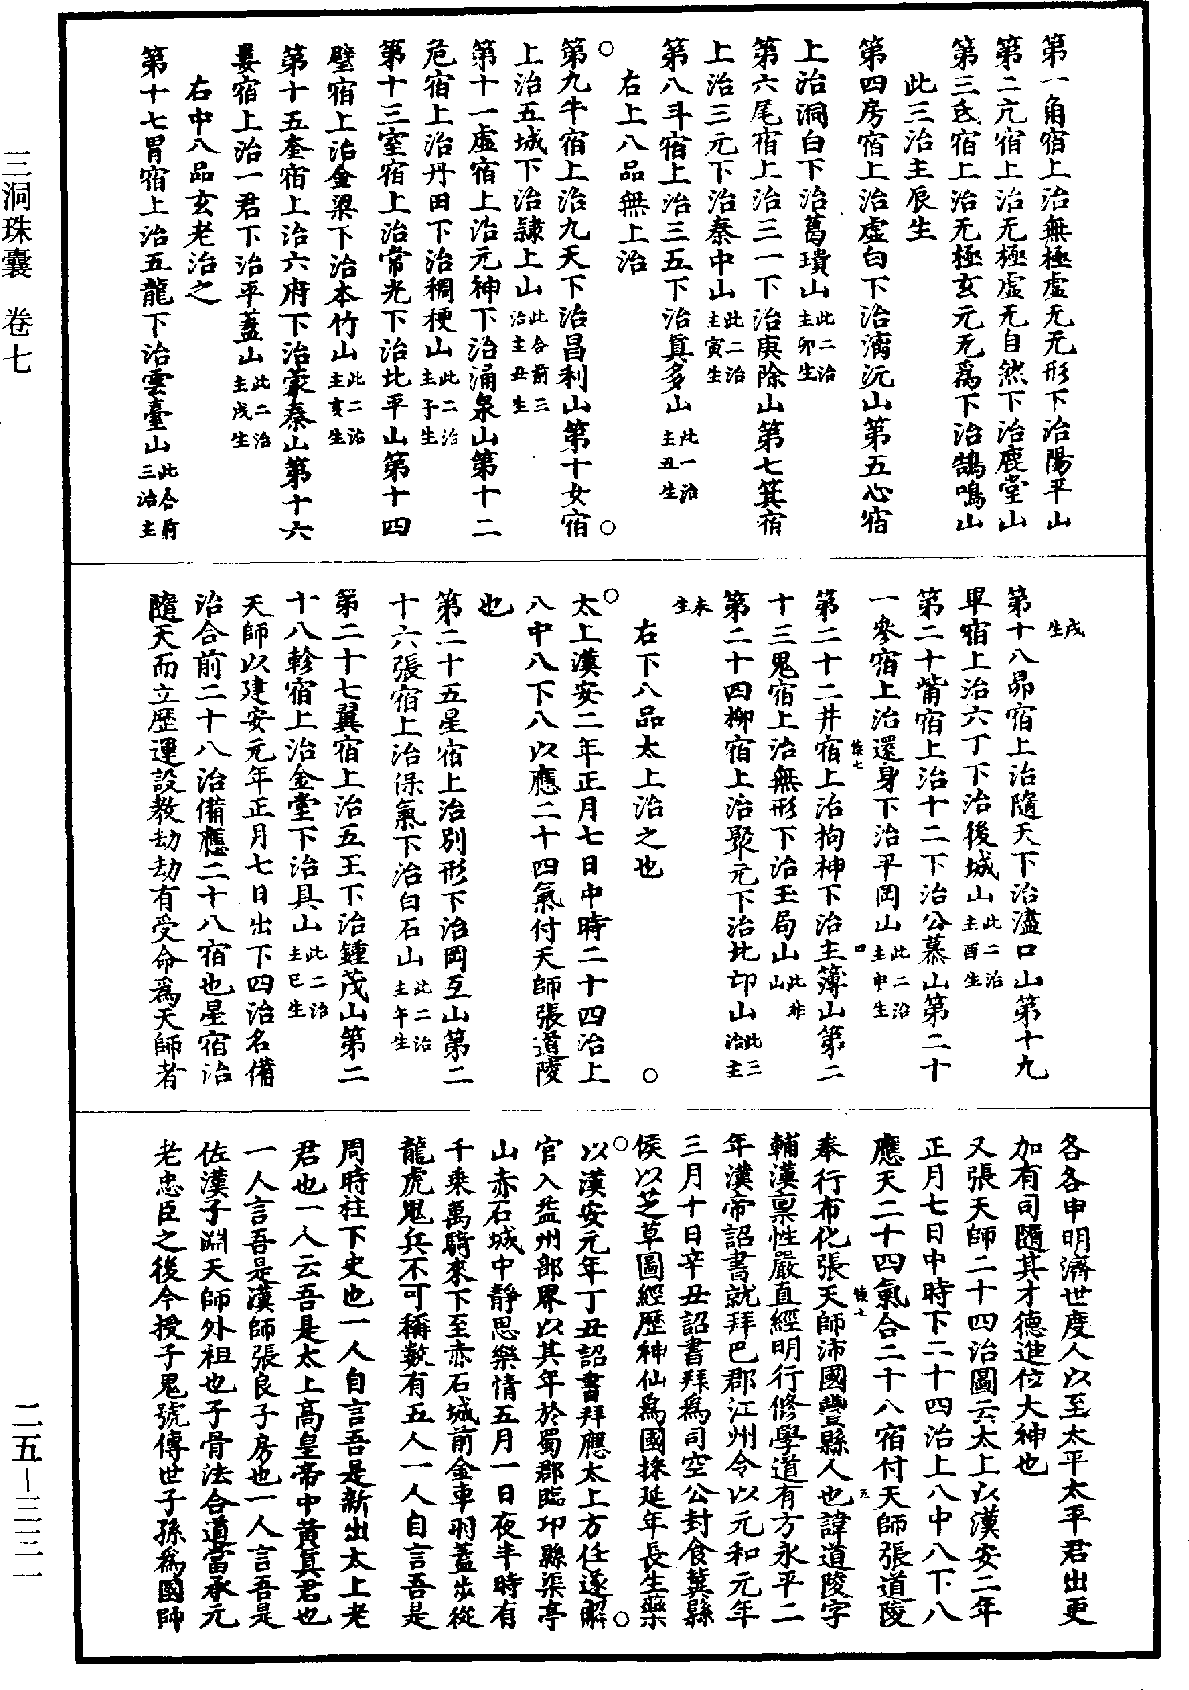 三洞珠囊　卷七
二五－三三一
第一角宿上治無極虛无无形下治陽平山
第二亢宿上治无極虛无自然下治鹿堂山
第三氐宿上治无極玄元无爲下治鶴鳴山
此三治主辰生
第四房宿上治虛白下治漓沅山第五心宿
上治洞白下治葛璝山此二治主卯生
第六尾宿上治三一下治庚除山第七箕宿
上治三元下治秦中山此二治主寅生
第八斗宿上治三五下治真多山此一治主丑生
右上八品無上治
第九牛宿上治九天下治昌利山第十女宿
上治五城下治隸上山此合前三治主丑生
第十一虛宿上治元神下治涌泉山第十二
危宿上治丹田下治稠梗山此二治主子生
第十三室宿上治常光下治北平山第十四
壁宿上治金梁下治本竹山此二治主亥生
第十五奎宿上治六府下治蒙秦山第十六
婁宿上治一君下治平蓋山此二治主戌生
右中八品玄老治之
第十七胃宿上治五龍下治雲臺山此合前三治主
戌生
第十八昴宿上治隨天下治濜口山第十九
畢宿上治六丁下治後城山此二治主酉生
第二十觜宿上治十二下治公慕山第二十
一參宿上治還身下治平岡山此二治主申生
第二十二井宿上治拘神下治主簿山第二
十三鬼宿上治無形下治玉局山此非山
第二十四柳宿上治聚元下治北邙山此三治主
未生
右下八品太上治之也
太上漢安二年正月七日中時二十四治上
八中八下八以應二十四氣付天師張道陵
也
第二十五星宿上治別形下治岡互山第二
十六張宿上治保氣下治白石山此二治主午生
第二十七翼宿上治五王下治鍾茂山第二
十八軫宿上治金堂下治具山此二治主巳生
天師以建安元年正月七日出下四治名備
治合前二十八治備應二十八宿也星宿治
隨天而立歷運設教劫劫有受命爲天師者
各各申明濟世度人以至太平太平君出更
加有司隨其才德進位大神也
又張天師二十四治圖云太上以漢安二年
正月七日中時下二十四治上八中八下八
應天二十四氣合二十八宿付天師張道陵
奉行布化張天師沛國豐縣人也諱道陵字
輔漢稟性嚴直經明行修學道有方永平二
年漢帝詔書就拜巴郡江州令以元和元年
三月十日辛丑詔書拜爲司空公封食冀縣
侯以芝草圖經歷神仙爲國採延年長生藥
以漢安元年丁丑詔書拜應太上方任遂解
官入益州部界以其年於蜀郡臨邛縣渠亭
山赤石城中靜思樂情五月一日夜半時有
千乘萬騎來下至赤石城前金車羽蓋步從
龍虎鬼兵不可稱數有五人一人自言吾是
周時柱下史也一人自言吾是新出太上老
君也一人云吾是太上高皇帝中黃真君也
一人言吾是漢師張良子房也一人言吾是
佐漢子淵天師外祖也子骨法合道當承元
老忠臣之後今授子鬼號傳世子孫爲國師